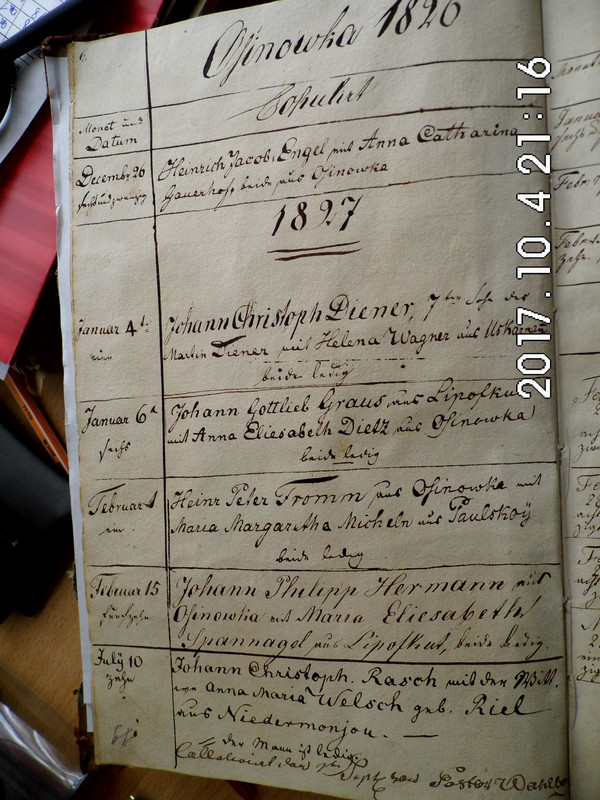 Osinowka 1826
Copulirt
Monat und
Datum
Decembr 26
Heinrich Jacob Engel mit Anna Catharina
Gauerhof, beide aus Osinowka
1827
Januar 4
Johann Christoph Diener, 7ter Sohn des
Martin Diener mit Helena Wagner aus
beide ledig
Januar 6
sechs
Johann Gottlieb Graus aus Lipofkut
mit Anna Eliesabeth Dietz aus Osinowka
beide ledig
Februar 1
ein
Heinr Peter Fromm aus Osinowka mit
Maria Margaretha Micheln aus Paulskoÿ
beide ledig
Februar 15
funfzehn
Johann Philipp Hermann aus
Osinowka mit Maria Eliesabeth
Spannagel aus Lipofkut, beide ledig.
July 10
zehn
Johann Christoph. Rasch mit der Witt
we Anna Maria Welsch geb. Riel
aus Niedermonjou. —
der Mann ist ledig
Sept. Pastor Wahlb
2017.10.4 21:16